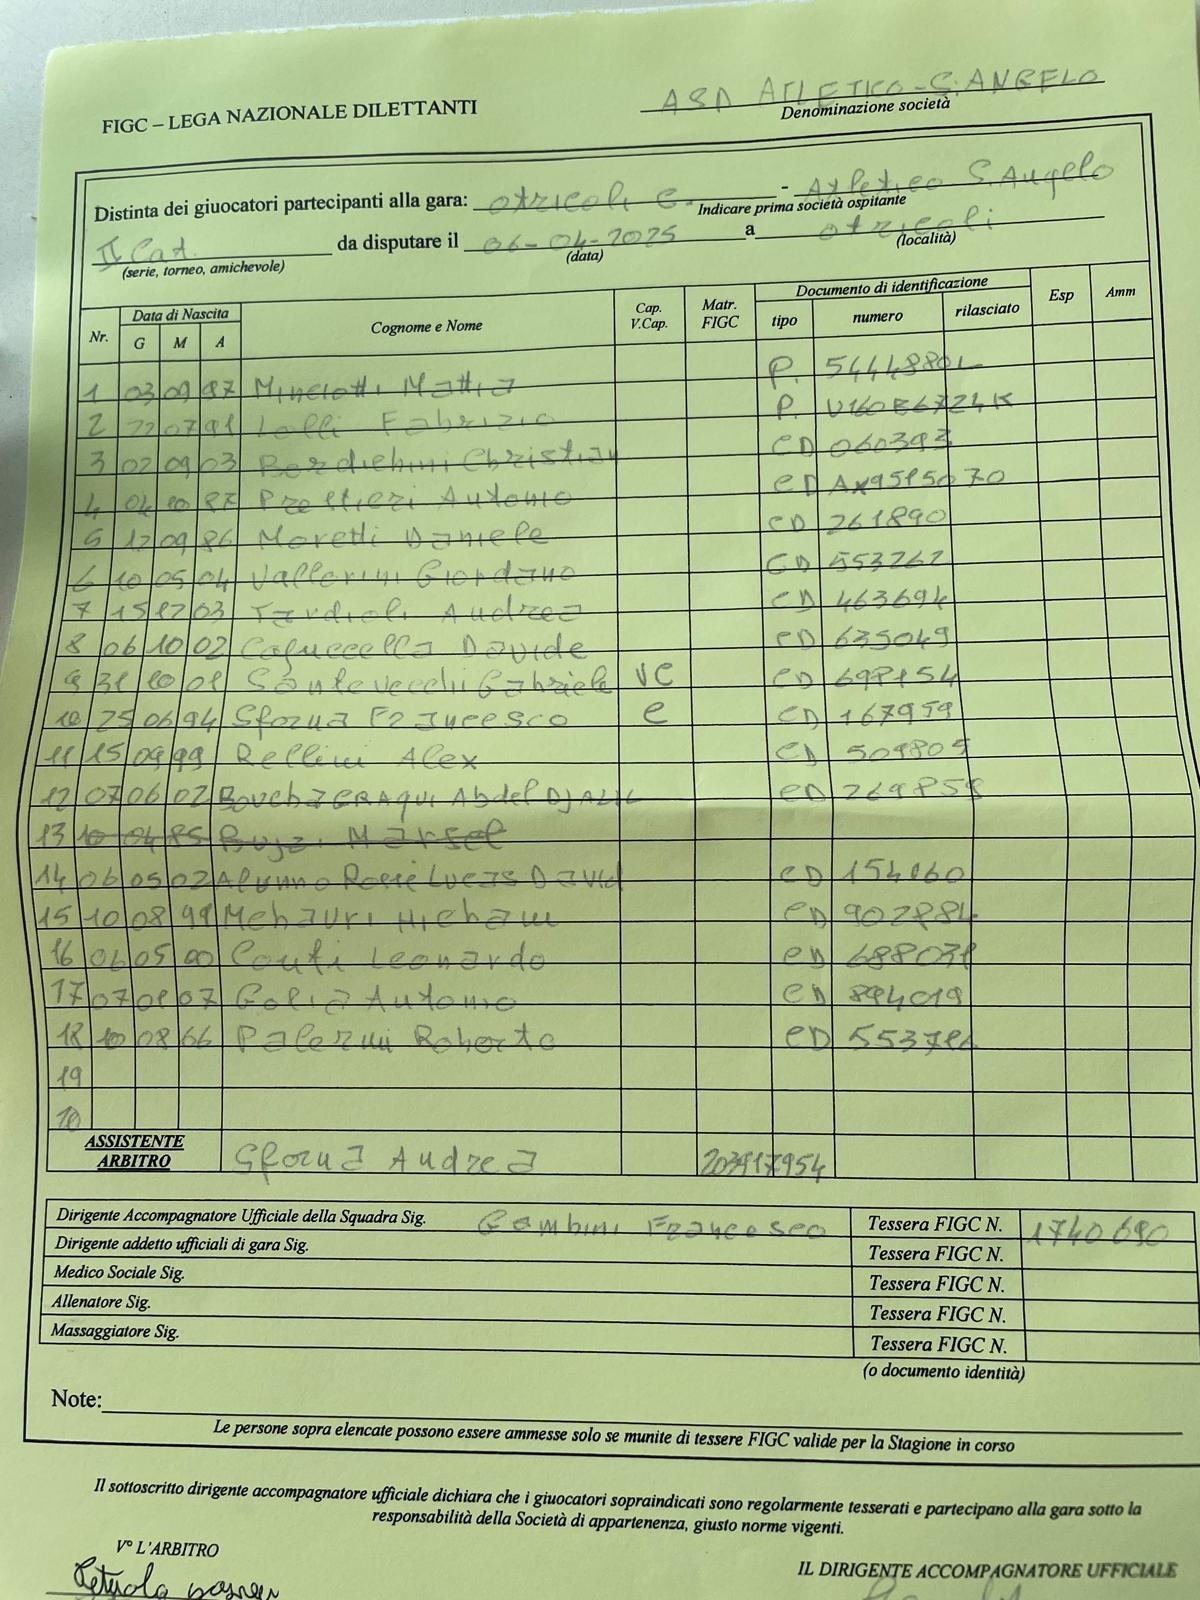 FIGC – LEGA NAZIONALE DILETTANTI
ASD ATLETICO - S. ANGELO
Denominazione società
Distinta dei giuocatori partecipanti alla gara: Otricoli C. - Atletico S. Angelo
Indicare prima società ospitante
II Cat. da disputare il 06-04-2025 a Otricoli
(serie, torneo, amichevole) (data) (località)
Nr. Data di Nascita Cognome e Nome Cap. V.Cap. Matr. FIGC Documento di identificazione Esp Amm
G M A tipo numero rilasciato
1 03 09 97 Minciotti Mattia P. 5444880L
2 22 07 91 Lolli Fabrizio P. U160E6724K
3 02 09 03 Bordichini Christian CD 060393
4 04 10 87 Antonio CD AX9515070
5 12 09 86 Moretti Daniele CD 261890
6 10 05 04 Vallorini Giordano CD 553262
7 15 12 03 Tardioli Andrea CD 463694
8 06 10 02 Cafuccella Davide CD 635049
9 31 10 01 Santevecchi Gabriele VC CD 698154
10 25 06 94 Sforna Francesco C CD 167959
11 15 09 99 Rellini Alex CD 509805
12 07 06 02 Bouchareraqui Abdel DJALIL CD 269859
13 10 04 85 Buja Marsel
14 06 05 02 Alunno Rosie Lucas David CD 154160
15 10 08 99 Mehauri Hicham CD 902884
16 06 05 00 Conti Leonardo CD 688031
17 07 01 07 Golia Antonio CD 894019
18 10 08 66 Palerini Roberto CD 553786
19
20
ASSISTENTE ARBITRO Sforna Andrea 203917954
Dirigente Accompagnatore Ufficiale della Squadra Sig. Gambini Francesco Tessera FIGC N. 1740690
Dirigente addetto ufficiali di gara Sig. Tessera FIGC N.
Medico Sociale Sig. Tessera FIGC N.
Allenatore Sig. Tessera FIGC N.
Massaggiatore Sig. Tessera FIGC N.
(o documento identità)
Note:
Le persone sopra elencate possono essere ammesse solo se munite di tessere FIGC valide per la Stagione in corso
Il sottoscritto dirigente accompagnatore ufficiale dichiara che i giuocatori sopraindicati sono regolarmente tesserati e partecipano alla gara sotto la
responsabilità della Società di appartenenza, giusto norme vigenti.
V° L'ARBITRO
IL DIRIGENTE ACCOMPAGNATORE UFFICIALE